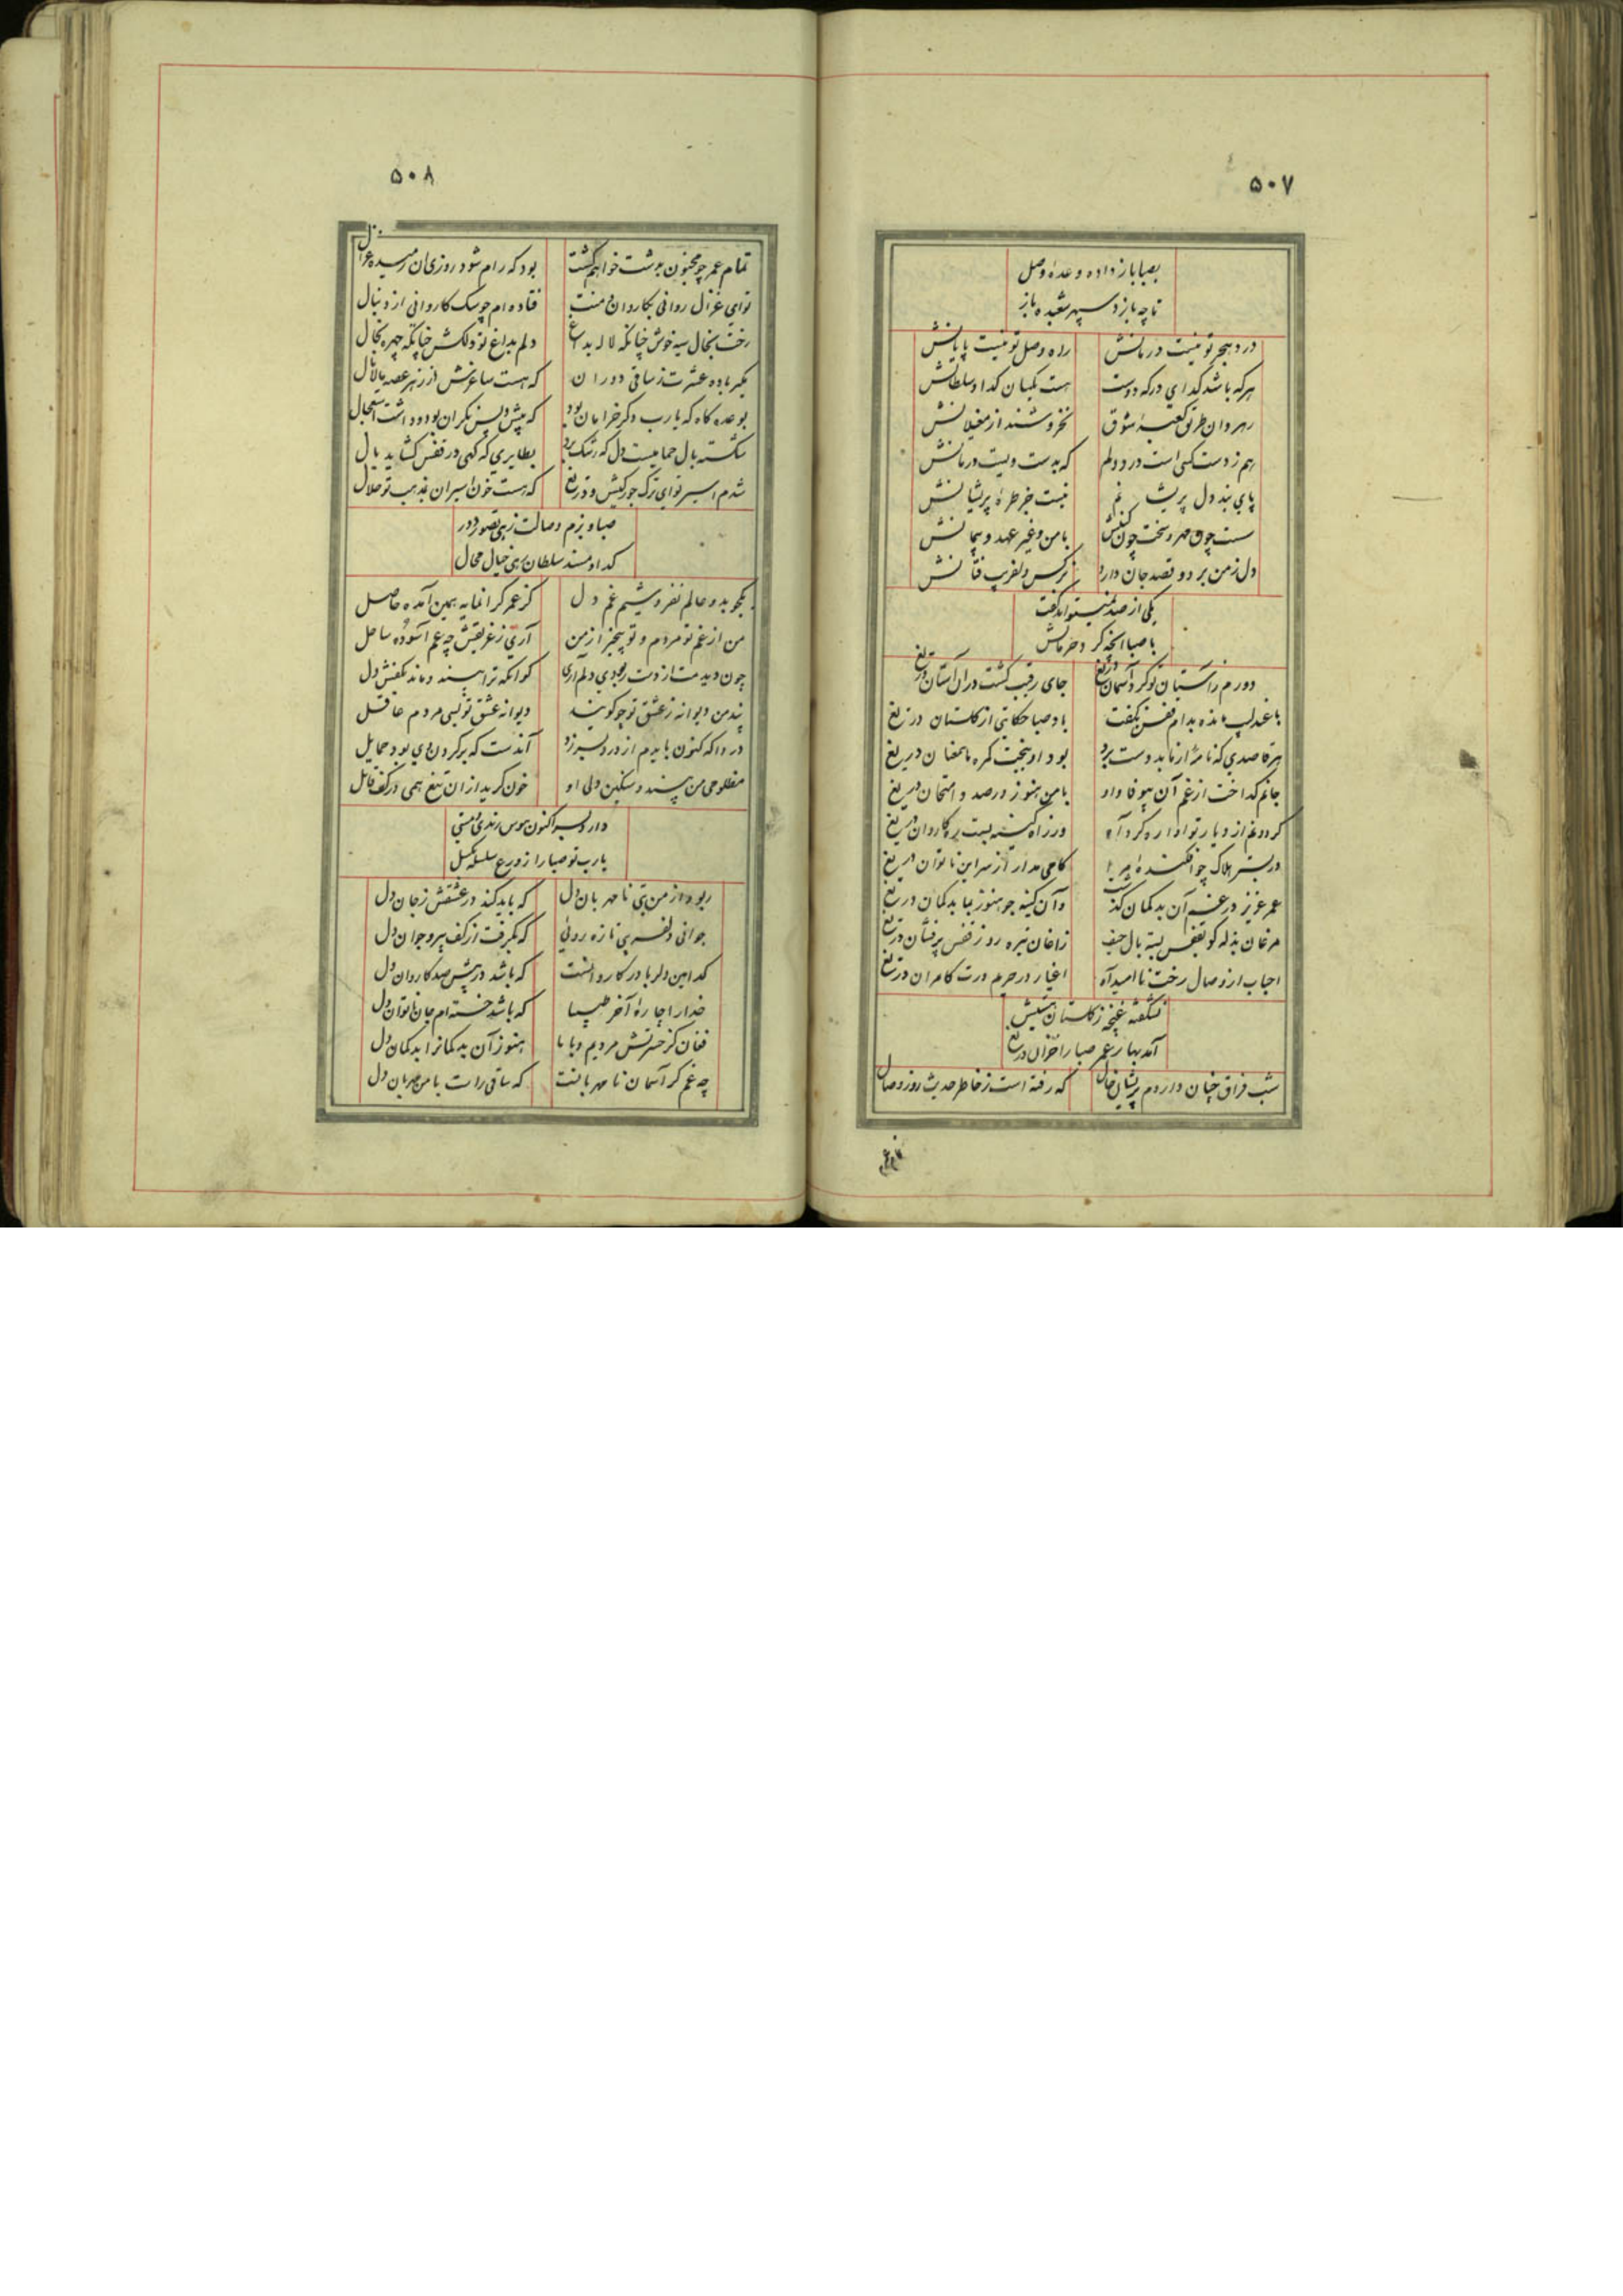 ۵۰۷
بصبا باز داده وعدهٔ وصل
تا چه بازد سپهر شعبده باز
درد هجر تو نیست درمانش    راه وصل تو نیست پایانش
هرکه باشد گدای درگه دوست    هست یکسان گدا و سلطانش
رهروان طریق کعبهٔ شوق    نخروشند از مغیلانش
بهم ز دست کسی است درد دلم    که بدست ویست درمانش
پای بند دل پریشانم    نیست جز طرهٔ پریشانش
سست چون مهر و سخت چون کینش    با من و غیر عهد و پیمانش
دل ز من برد و قصد جان دارد    نرکس دلفریب فتانش
یکی از صد نمیتواند گفت
با صبا آنچه کرد حرمانش
دورم ز آستان تو کرد آسمان دریغ    جای رقیب گشت در آن آستان دریغ
با عندلیب مانده بدام قفس نگفت    باد صبا حکایتی از گلستان دریغ
هر قاصدی که نامهٔ از ما بدوست برد    بود او ببخت گمره ما همعنان دریغ
جانم گداخت از غم آن بیوفا و او    با من هنوز در صدد امتحان دریغ
گردون غم از دیار تو آواره کرد آه    ورز راه کینه بست ره کاروان دریغ
در بستر هلاک چو افکندهٔ مرا    گاهی مدار از سر این ناتوان دریغ
عمر عزیز در غم آن بدگمان گذشت    وآن کینه جو هنوز بما بدگمان دریغ
مرغان بذله گو بقفس بسته بال حیف    زاغان تیره روز قفس پرفشان دریغ
احباب از وصال رخت ناامید آه    اغیار در حریم درت کامران دریغ
نشکفته غنچهٔ ز گلستان عیشش
آمد بهار عمر صبا را خزان دریغ
شب فراق چنان داردم پریشان حال    که رفته است ز خاطر حدیث روز وصال
تمام عمر
۵۰۸
تمام عمر چو مجنون بدشت خواهم گشت    بود که رام شود روزی آن رمیده غزال
نوای غزل روانی بکاروان منت    فتاده ام چو سگ کاروانی از دنبال
رخت بخال سیه خوش چنانکه لاله بداغ    دلم بداغ تو دلکش چنانکه چهره بخال
مگیر باده عشرت ز ساقی دوران    که هست ساغرش از زهر غصه مالامال
بوعده گاه که یارب دگر خرامان بود    که پیش و پس نگران بود و داشت استعجال
شکسته بال حمامیست دل که رشک برد    بطایری که گهی در قفس گشاید بال
شدم اسیر تو ای ترک جورکیش و دریغ    که هست خون اسیران بمذهب تو حلال
صبا و بزم وصالت زهی تصور دور
گدا و مسند سلطان زهی خیال محال
یکجو بدو عالم نفروشیم غم دل    کز عمر گرانمایه همین آمده حاصل
من از غم تو مردم و تو بیخبر از من    آری ز غریقش چه غم آسودهٔ ساحل
چون دید مت از دست ربودی دلم آری    کو آنکه ترا بیند و ماند بکفش دل
پند من دیوانه ز عشق تو چو گویند    دیوانه عشق تو بسی مردم عاقل
دردا که کنون بایدم از درد بسر زد    آندست که بر گردن وی بود حمایل
مظلومی من بیند و سنگین دلی او    خون گرید از آن تیغ همی در کف قاتل
دارد بسر اکنون هوس رندی و مستی
یارب تو صبا را ز ورع سلسله بگسل
ربود از من بتی نامهربان دل    که باید کند در عشقش ز جان دل
جوانی دلفریبی تازه روئی    که بگرفت از کف پیر و جوان دل
کدامین دلربا در کاروانست    که باشد در پیش صد کاروان دل
خدا را چارهٔ آخر طبیبا    که باشد خسته ام جان ناتوان دل
فغان کز حسرتش مردیم و با ما    هنوز آن بدگمانرا بدگمان دل
چه غم گر آسمان نامهربانست    که ساقی راست با من مهربان دل